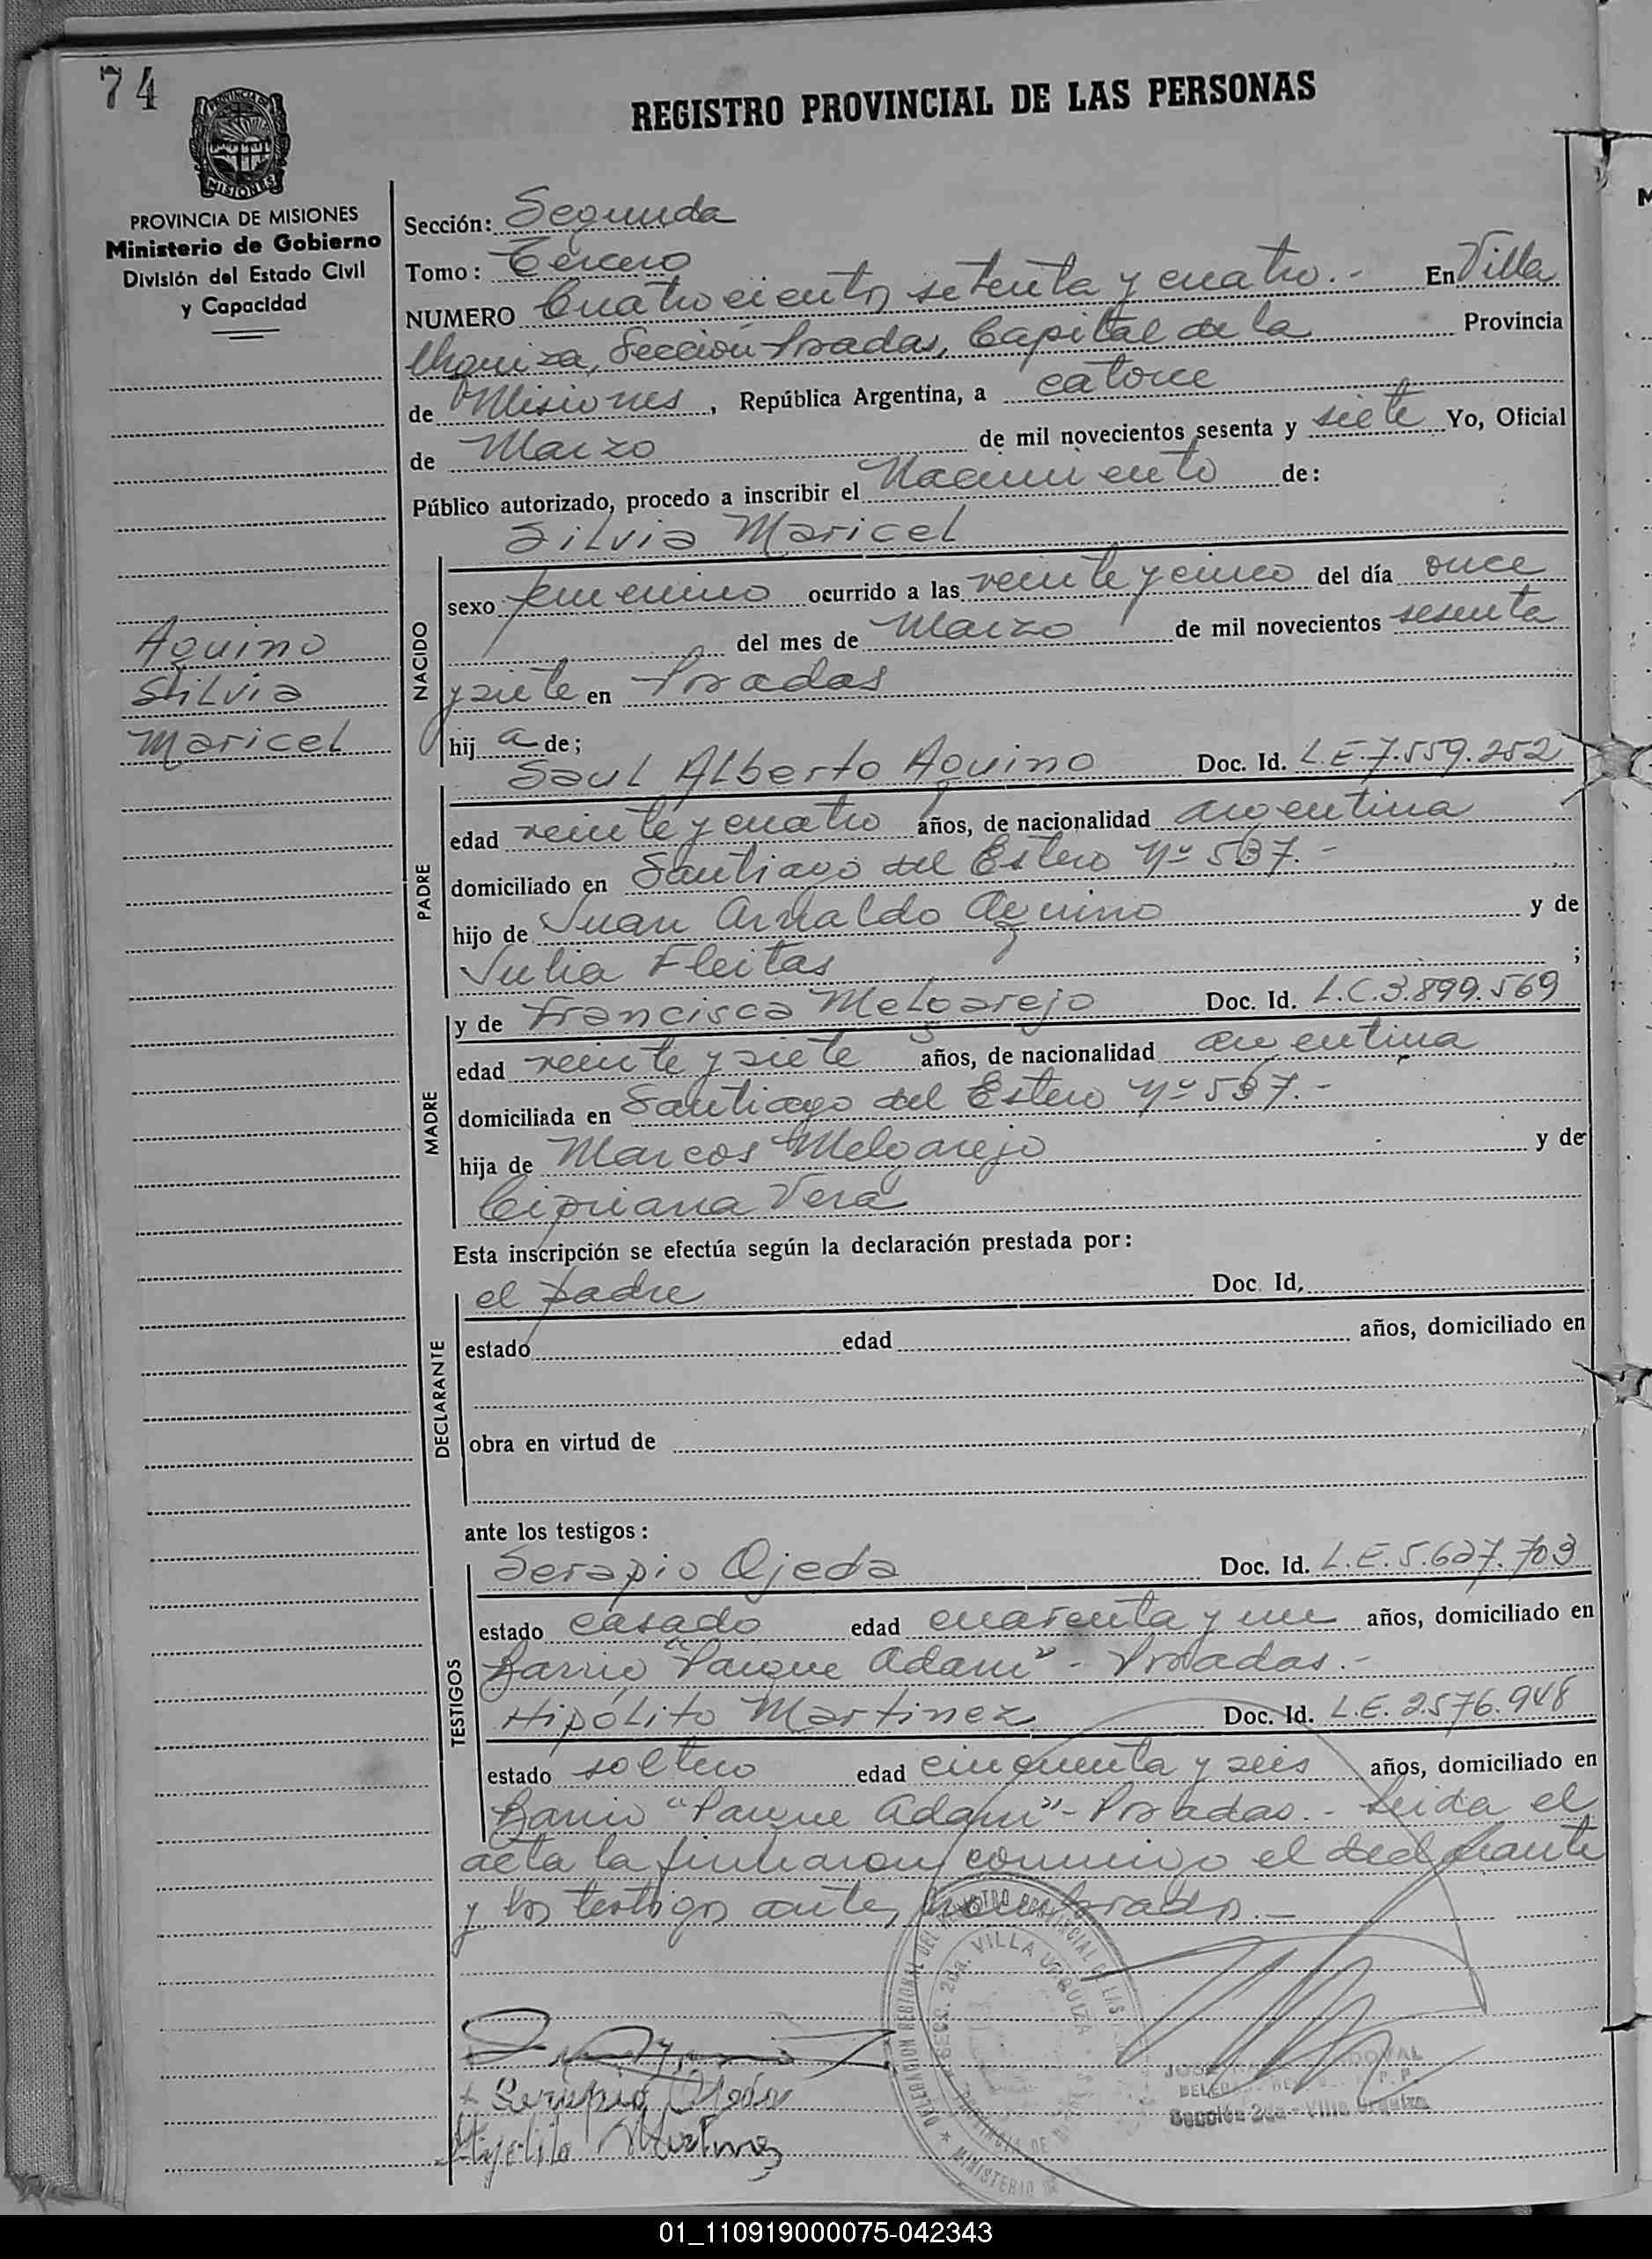 74
REGISTRO PROVINCIAL DE LAS PERSONAS
PROVINCIA DE MISIONES
Ministerio de Gobierno
División del Estado Civil
y Capacidad
Aquino
Silvia
Maricel
Sección: Segunda
Tomo: Tercero
NUMERO Cuatrocientos setenta y cuatro.- En Villa
Urquiza, Sección Posadas, Capital de la Provincia
de Misiones, República Argentina, a catorce
de Marzo de mil novecientos sesenta y siete Yo, Oficial
Público autorizado, procedo a inscribir el Nacimiento de:
Silvia Maricel
NACIDO
sexo femenino ocurrido a las veinte y cinco del día once
del mes de Marzo de mil novecientos sesenta
y siete en Posadas
hij a de;
Saul Alberto Aquino Doc. Id. L.E.7.559.252
PADRE
edad veinte y cuatro años, de nacionalidad argentina
domiciliado en Santiago del Estero Nº 537.-
hijo de Juan Arnaldo Aquino y de
Julia Fleitas ;
y de Francisca Melgarejo Doc. Id. L.C.3.899.569
MADRE
edad veinte y siete años, de nacionalidad argentina
domiciliada en Santiago del Estero Nº 537.-
hija de Marcos Melgarejo y de
Cipriana Vera
Esta inscripción se efectúa según la declaración prestada por:
el padre Doc. Id.
DECLARANTE
estado edad años, domiciliado en
obra en virtud de
ante los testigos:
Serapio Ojeda Doc. Id. L.E.5.627.703
TESTIGOS
estado casado edad cuarenta y un años, domiciliado en
Barrio "Parque Adam" - Posadas.-
Hipólito Martinez Doc. Id. L.E. 2.576.948
estado soltero edad cincuenta y seis años, domiciliado en
Barrio "Parque Adam" - Posadas.- Leida el
acta la firmaron conmigo el declarante
y los testigos ante, nombrados.-
Serapio Ojeda
Hipolito Martinez
DELEGACION REGIONAL DEL REGISTRO PROVINCIAL DE LAS
SECC. 2da. VILLA URQUIZA
PROVINCIA DE
MINISTERIO DE
Sección 2da - Villa Urquiza
01_110919000075-042343